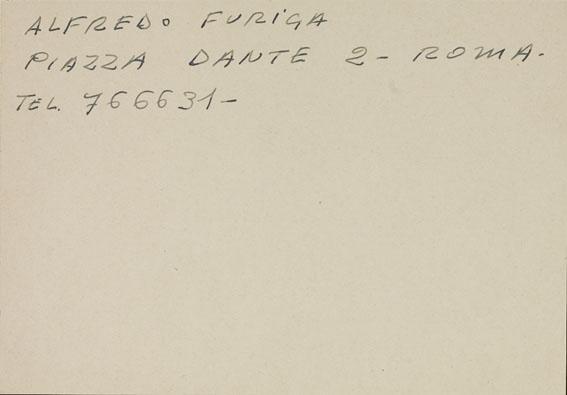 ALFREDO FURIGA
PIAZZA DANTE 2 - ROMA.
TEL. 766631 -